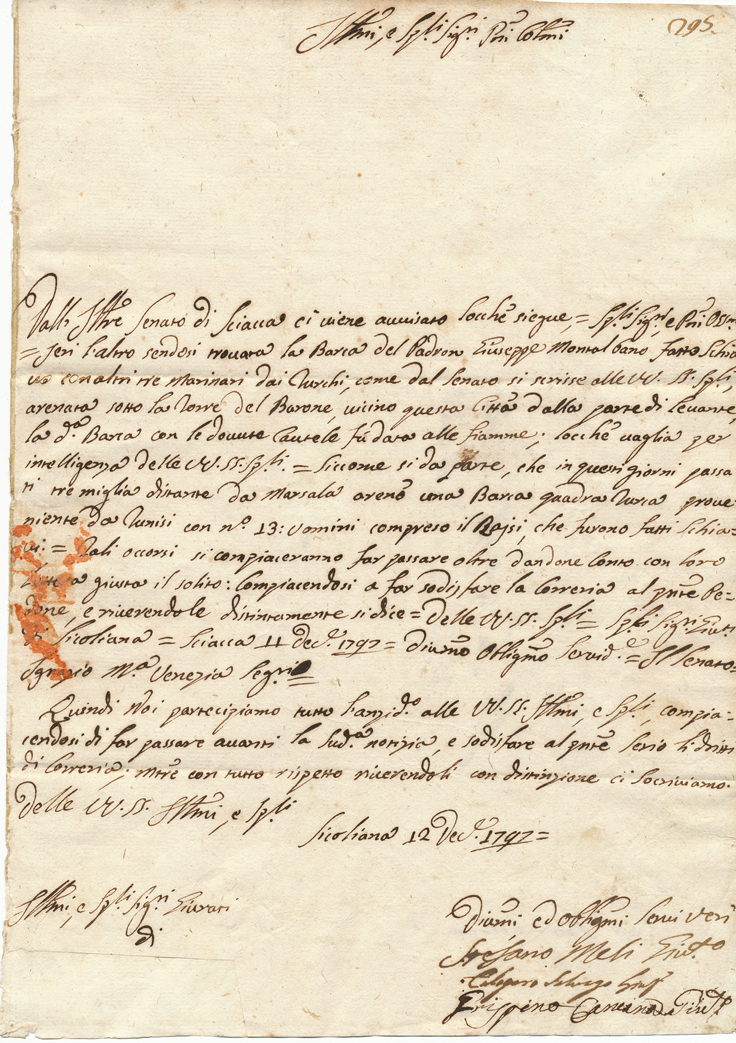 295.
Ill.mi, e Sp.li Sig.ri P.ni Col.mi
Dall' Ill.re Senato di Sciacca ci viene avvisato locchè siegue = Sp.li Sig.ri, e P.ni Oss.mi
= Jeri l'altro sendosi trovata la Barca del Padron Giuseppe Montalbano fatto Schia
vo con altri tre Marinari dai Turchi, come dal Senato si scrisse alle VV. SS. Sp.li,
arenata sotto la Torre del Barone, vicino questa Città dalla parte di Levante,
la d.a Barca con le dovute Cautele fu data alle fiamme; locchè vaglia per
intelligenza delle VV. SS. Sp.li. = Siccome si da parte, che in questi giorni passa
ti tre miglia distante da Marsala arenò una Barca quadra Turca prove
niente da Tunisi con n.o 13: Uomini compreso il Rajsi, che furono fatti Schia=
vi: = Tali occorsi si compiaceranno far passare oltre dandone conto con loro
a giusta il solito: compiacendosi a far sodisfare la Correria al p.nte Pe=
done, e riverendole distintamente si dice = Delle VV. SS. Sp.li = Sp.li Sig.ri Giurati
di Sicoliana = Sciacca 11 Dec.e 1797 = Div.mo Oblig.mo Servid.e = Il Senato =
Ignazio M.a Venezia Segr.io
Quindi Noi partecipiamo tutto l'anzid.o alle VV. SS. Ill.mi, e Sp.li, compia=
cendosi di far passare avanti la sud.a notizia, e sodisfare al p.nte Serio li dritti
di Correria; m.tre con tutto rispetto riverendoli con distinzione ci soscriviamo.
Delle VV. SS. Ill.mi, e Sp.li
Sicoliana 12 Dec.e 1797 =
Ill.mi, e Sp.li Sig.ri Giurati
di
Div.mi ed Oblig.mi Servi veri
Stefano Meli Giur.to
Calogero
Crispino Giur.to